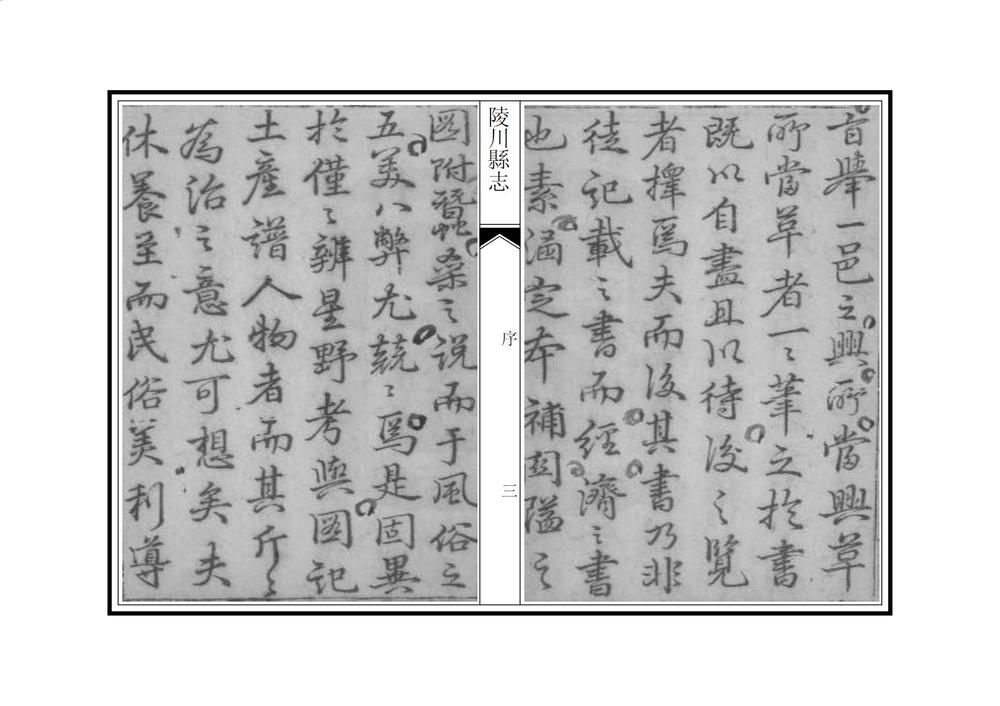 盲舉一邑之興所當興草
所當草者一〻筆之於書
既以自盡且以待後之覽
者擇焉夫而後其書乃非
徒記載之書而經濟之書
也素涵定本補
之
陵川縣志
序
三
圖附蠶桑之說而于風俗之
五美八弊尤兢〻焉是固異
於僅〻辨星野考輿圖記
土產譜人物者而其斤〻
為治之意尤可想矣夫
休養至而民俗美利導